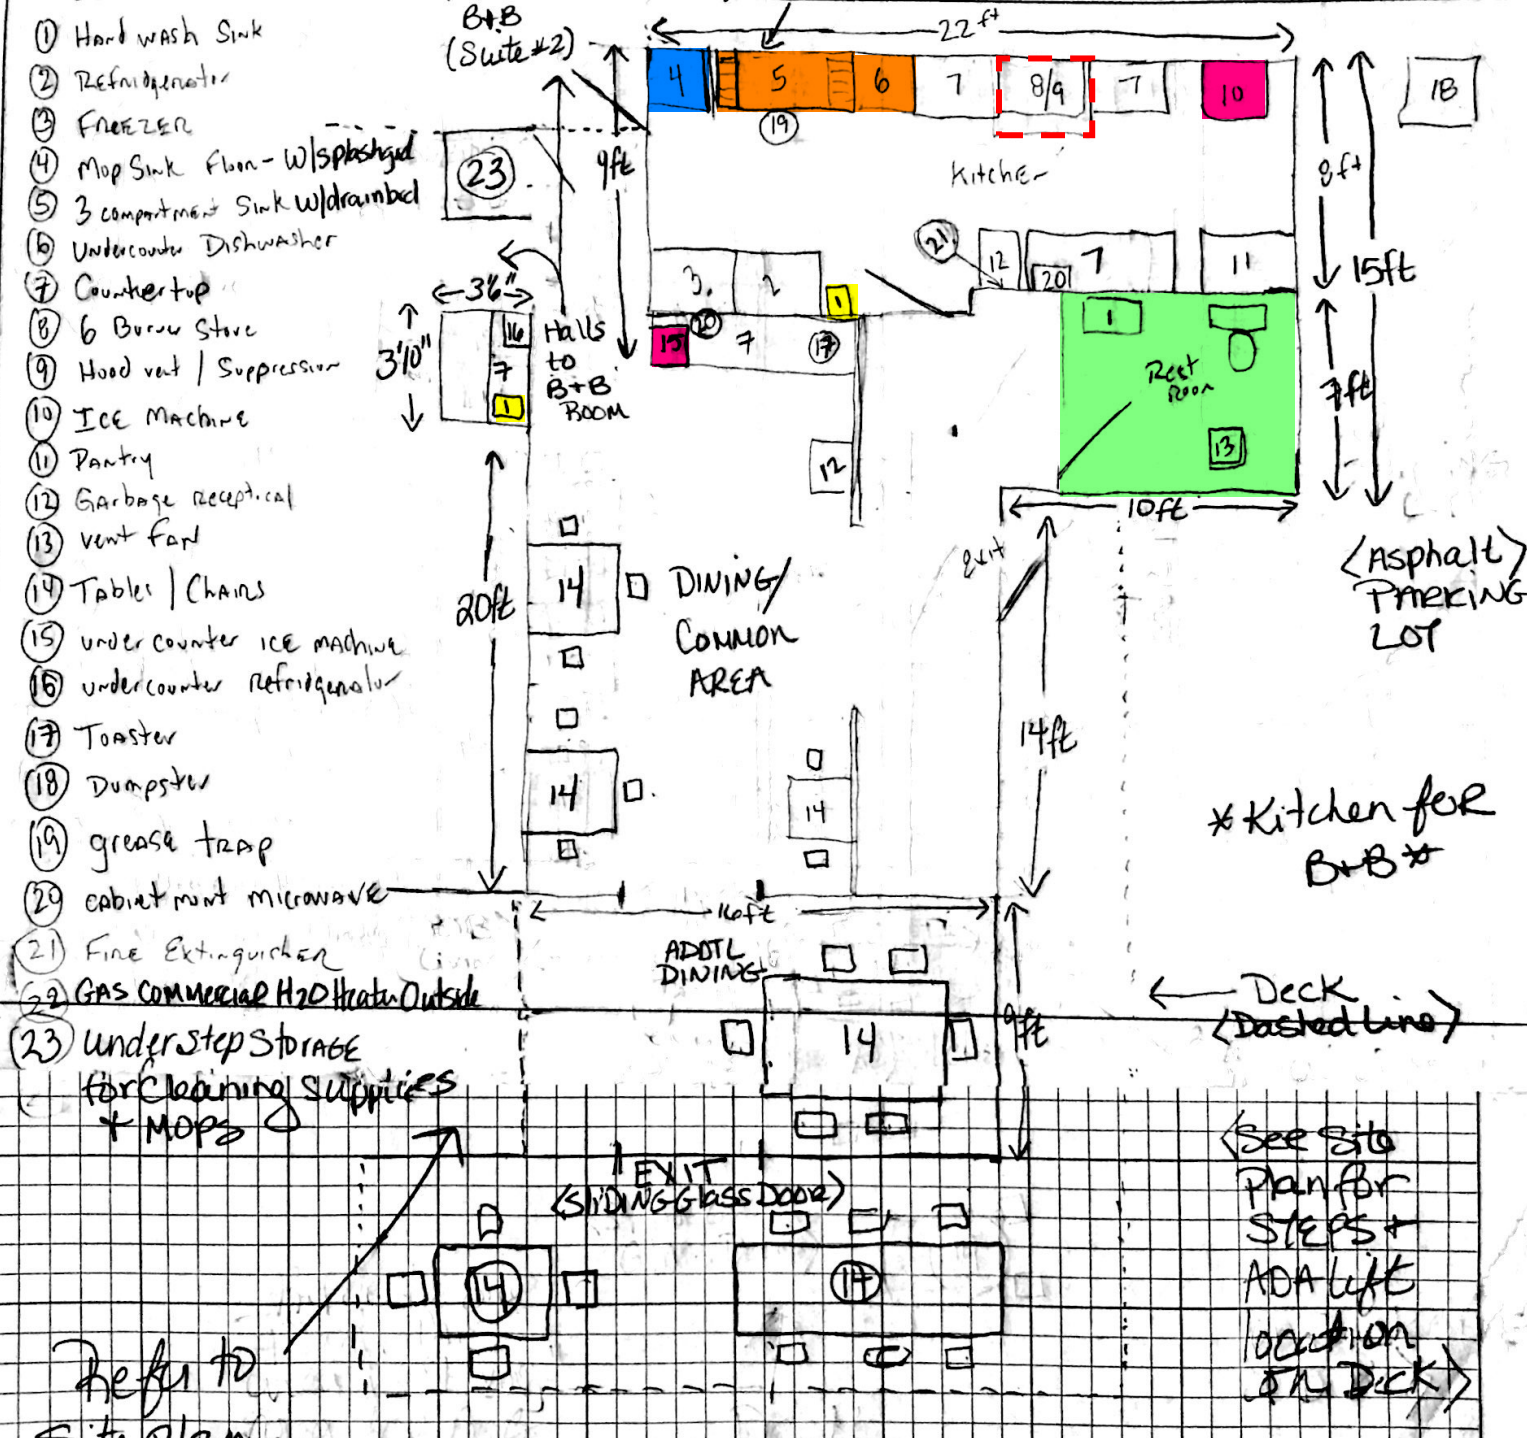 ① Hand wash Sink
② Refridgerator
③ FREEZER
④ Mop Sink Floor - W/splashgrd
⑤ 3 compartment Sink W/drainbod
⑥ Undercounter Dishwasher
⑦ Countertop
⑧ 6 Burner Stove
⑨ Hood vent / Suppression
⑩ ICE MACHINE
⑪ Pantry
⑫ Garbage Receptical
⑬ vent fan
⑭ Tables / Chairs
⑮ under counter ICE MACHINE
⑯ undercounter Refridgerator
⑰ Toaster
⑱ Dumpster
⑲ grease trap
⑳ cabinet mont microwave
㉑ Fire Extinguisher
㉒ GAS Commercial H2O Heater Outside
㉓ understep Storage
for Cleaning supplies
+ Mops
Refer to
Site plan
B+B
(Suite #2)
22 ft
4
5
6
7
8/9
7
10
18
19
9ft
Kitchen
8ft
15ft
23
21
3.
2
1
12
20
7
11
3'6"
3'10"
16
7
1
Halls
to
B+B
ROOM
15
20
7
17
1
Rest
Room
13
7ft
10ft
12
Exit
<Asphalt>
PARKING
LOT
20ft
14
DINING/
COMMON
AREA
14
14
14ft
*Kitchen for
B+B*
16ft
ADDTL
DINING
14
9ft
Deck
<Dashed Line>
EXIT
<SliDING Glass Door>
14
14
<See Site
Plan for
STEPS +
ADA lift
location
on Deck>